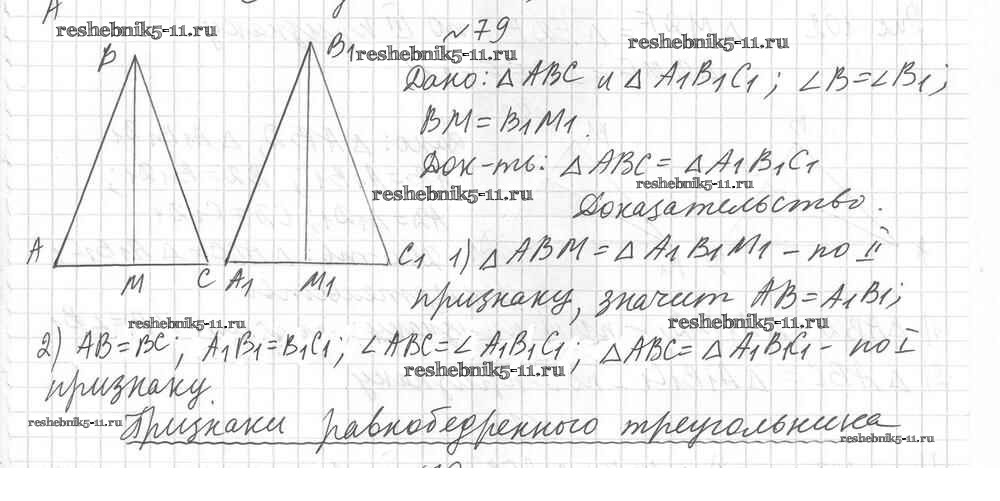 А
reshebnik5-11.ru
№79
reshebnik5-11.ru
B
B1
reshebnik5-11.ru
Дано: △ ABC и △ A1B1C1; ∠B=∠B1;
BM = B1M1.
Док-ть: △ ABC = △ A1B1C1
reshebnik5-11.ru
reshebnik5-11.ru
Доказательство.
A
M
C
A1
M1
C1
1) △ ABM = △ A1B1M1 – по II
признаку, значит AB = A1B1;
reshebnik5-11.ru
reshebnik5-11.ru
2) AB=BC; A1B1=B1C1; ∠ABC=∠A1B1C1; △ABC= △A1B1C1 – по I
reshebnik5-11.ru
признаку.
reshebnik5-11.ru
Признаки равнобедренного треугольника
reshebnik5-11.ru